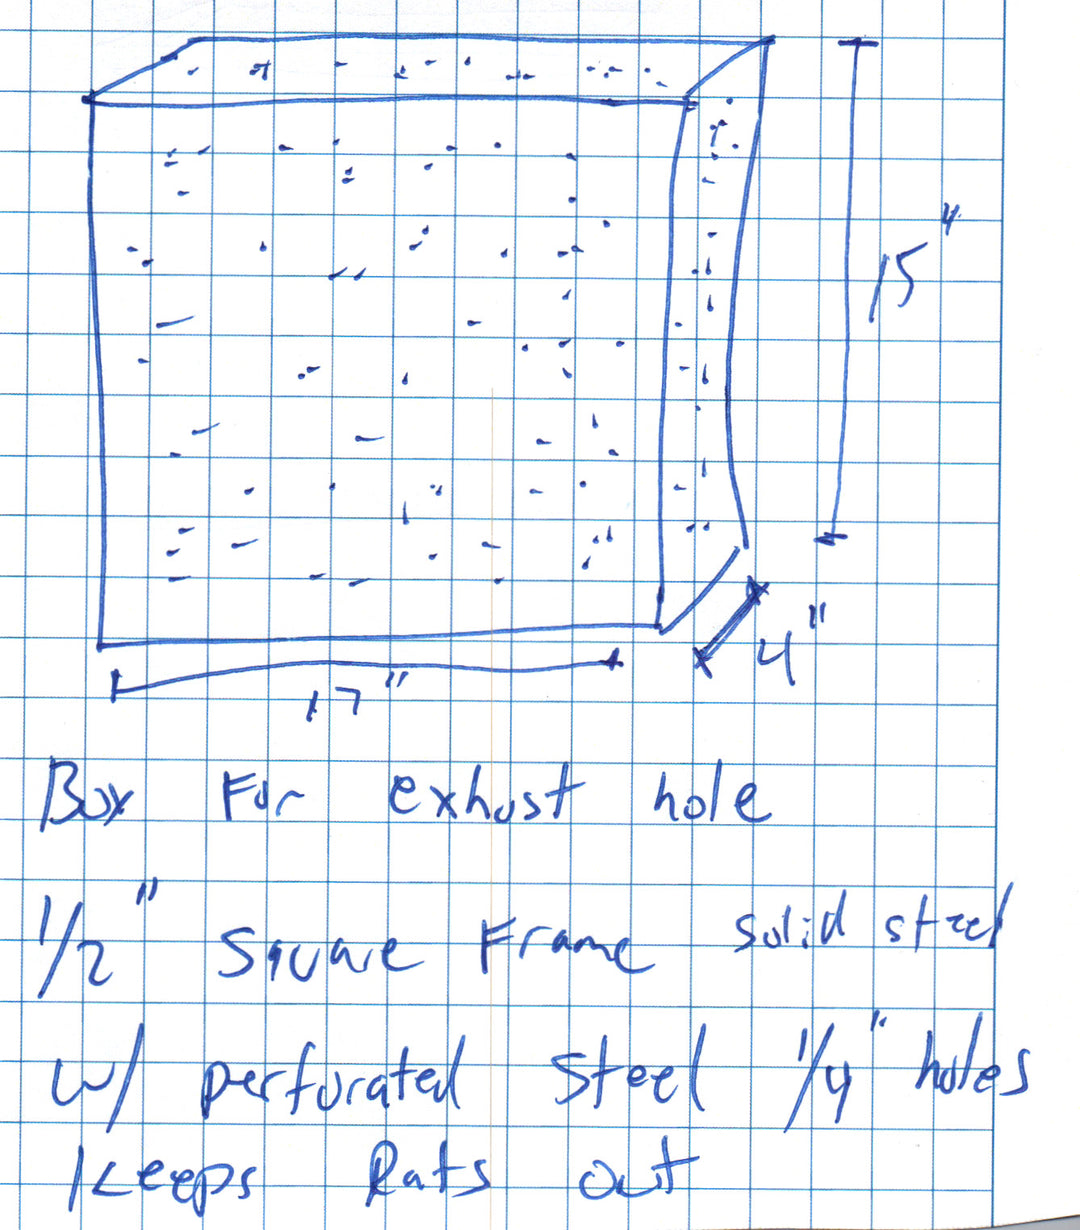 15"
4"
17"
Box For exhust hole
1/2" Square Frame solid steel
w/ perforated Steel 1/4" holes
Keeps Rats out